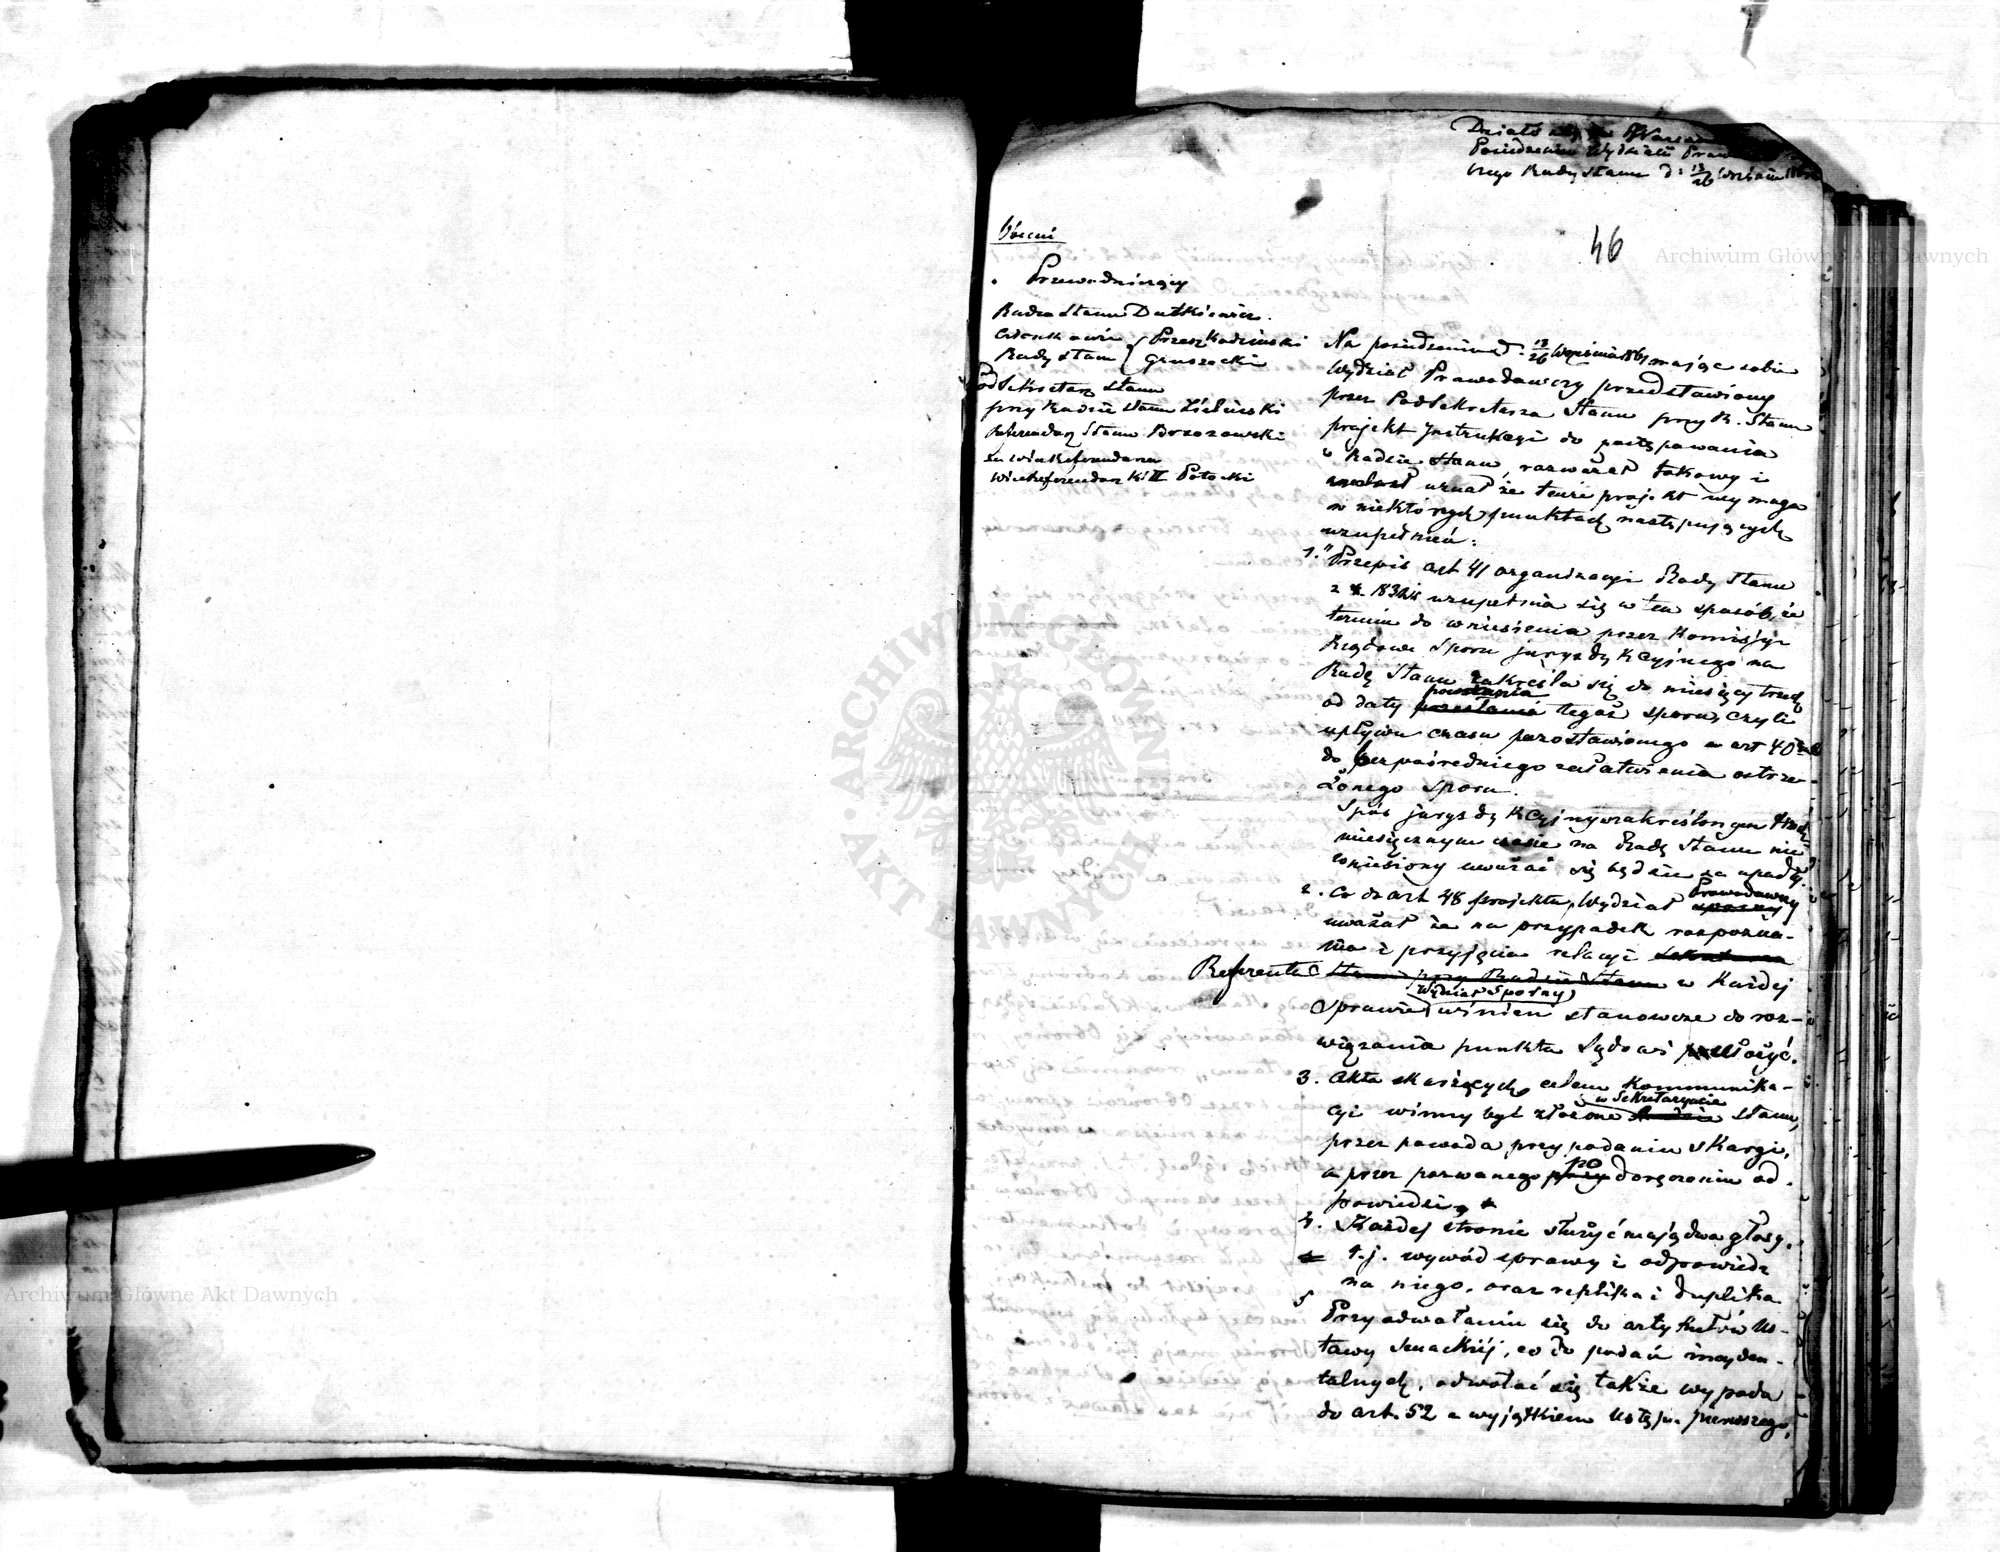 Działo się w Warszawie
Posiedzeniu Wydziału Prawo
czego Rady Stanu d: 13/26 Września
46
Archiwum Główne Akt Dawnych
Obecni
Przewodniczący
Radca Stanu Dutkiewicz.
Członkowie Rady Stanu Gruszecki
PodSekretarz Stanu
przy Radzie Stanu Zieliński
Referendarz Stanu Brzozowski
WiceReferendarz Kl: II Potocki
Na posiedzeniu d: 13/26 Września 1861 mając sobie
Wydział Prawodawczy przedstawiony
przez PodSekretarza Stanu przy R. Stanu
projekt Instrukcyi do postępowania
w Radzie Stanu, rozważał takowy i
uznał że tenże projekt wymaga
w niektórych punktach następujących
uzupełnień:
1. "Przepis art 41 organizacyi Rady Stanu
z r. uzupełnia się w ten sposób, że
termin do wniesienia przez Komisyje
Rządowe Sporu juryzdykcyjnego na
Radę Stanu zakréśla się do miesięcy trzech
powstania
od daty przesłania tegoż sporu, czyli
upływu czasu pozostawionego w art 40
do bezpośredniego załatwienia ostrze-
żonego Sporu.
Spór juryzdykcyjny w zakreślonym trzech
miesięcznym czasie na Radę Stanu nie
wniesiony uważać się będzie za upadły.
2. Co do art 48 projektu, Wydział sporny
Prawodawczy
uważał że na przypadek rozpozna-
nia i przyjęcia relacyi Sekretarza
Referenta Stanu przy Radzie Stanu w każdej
(Wydział Sporny)
sprawie winien stanowcze do roz-
wiązania punkta Sądowi ułożyć.
3. Akta skarżących celem Kommunika-
w Sekretaryacie
cyi winny być złożone Stanu,
przez powoda przy podaniu skargi,
po
a przez pozwanego przy doręczeniu od-
powiedzi,
4. Każdej stronie służyć mają dwa głosy,
t.j. wywód sprawy i odpowiedź
na niego, oraz replika i duplika
5 Przy odwołaniu się do artykułów Us-
tawy Senackiéj, co do podań incyden-
talnych, odwołać się także wypada
do art. 52 z wyjątkiem Ustępu pierwszego,
ARCHIWUM GŁÓWNE AKT DAWNYCH
Archiwum Główne Akt Dawnych